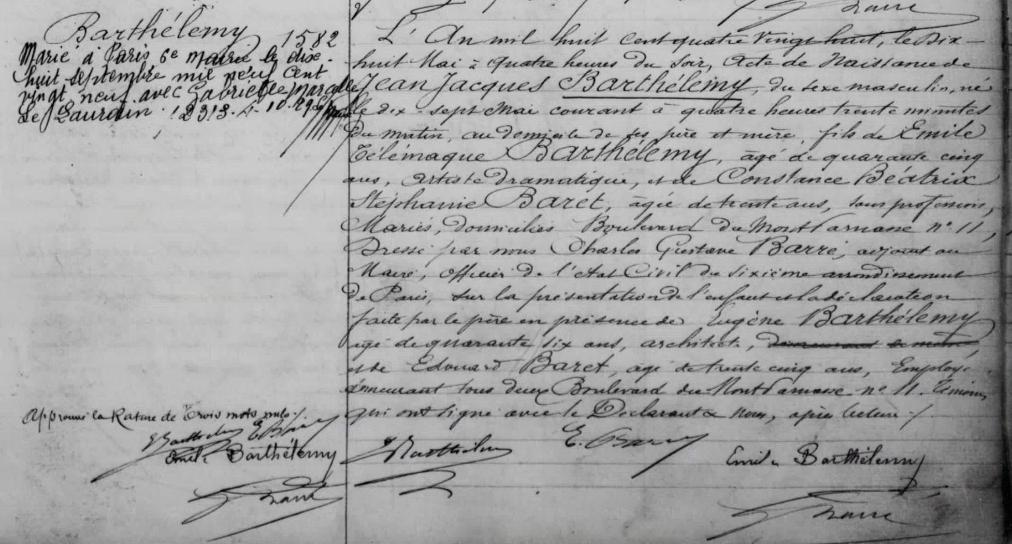 Barthélemy 1582
Marié à Paris 6e mairie le dix-
huit septembre mil neuf cent
vingt neuf avec Gabrielle Marcelle
Le 10.29
L'An mil huit cent quatre vingt huit, le Dix-
huit Mai à quatre heures du Soir, Acte de Naissance de
Jean Jacques Barthélémy, du sexe masculin, né
le dix-sept Mai courant à quatre heures trente minutes
du matin, au domicile de ses père et mère, fils de Emile
Télémaque Barthélemy, âgé de quarante cinq
ans, Artiste dramatique, et de Constance Béatrix
Stéphanie Baret, âgée de trente ans, sans profession,
Mariés, domiciliés Boulevard du MontParnasse n° 11,
Dressé par nous Charles Gustave Barré, adjoint au
Maire, Officier de l'Etat Civil du sixième arrondissement
de Paris, sur la présentation de l'enfant et la déclaration
faite par le père en présence de Eugène Barthélemy
âgé de quarante six ans, architecte,
et de Edouard Baret, âgé de trente cinq ans, Employé
demeurant tous deux Boulevard du MontParnasse n° 11. témoins,
qui ont signé avec le Déclarant & nous, après lecture./.
Approuvé la Rature de Trois mots nuls./.
E. Baret
Emile Barthélemy
Barré
E. Baret
Emile Barthélemy
Barré